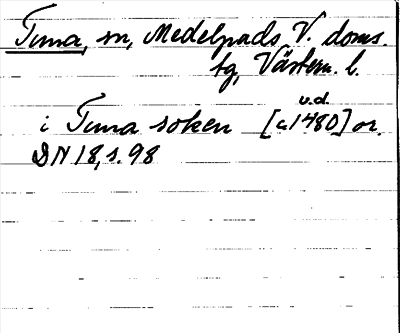 Tuna, sn, Medelpads V. doms.
tg, Västern. l.
u.d.
i Tuna soken [c 1480] or.
DN 18, s. 98